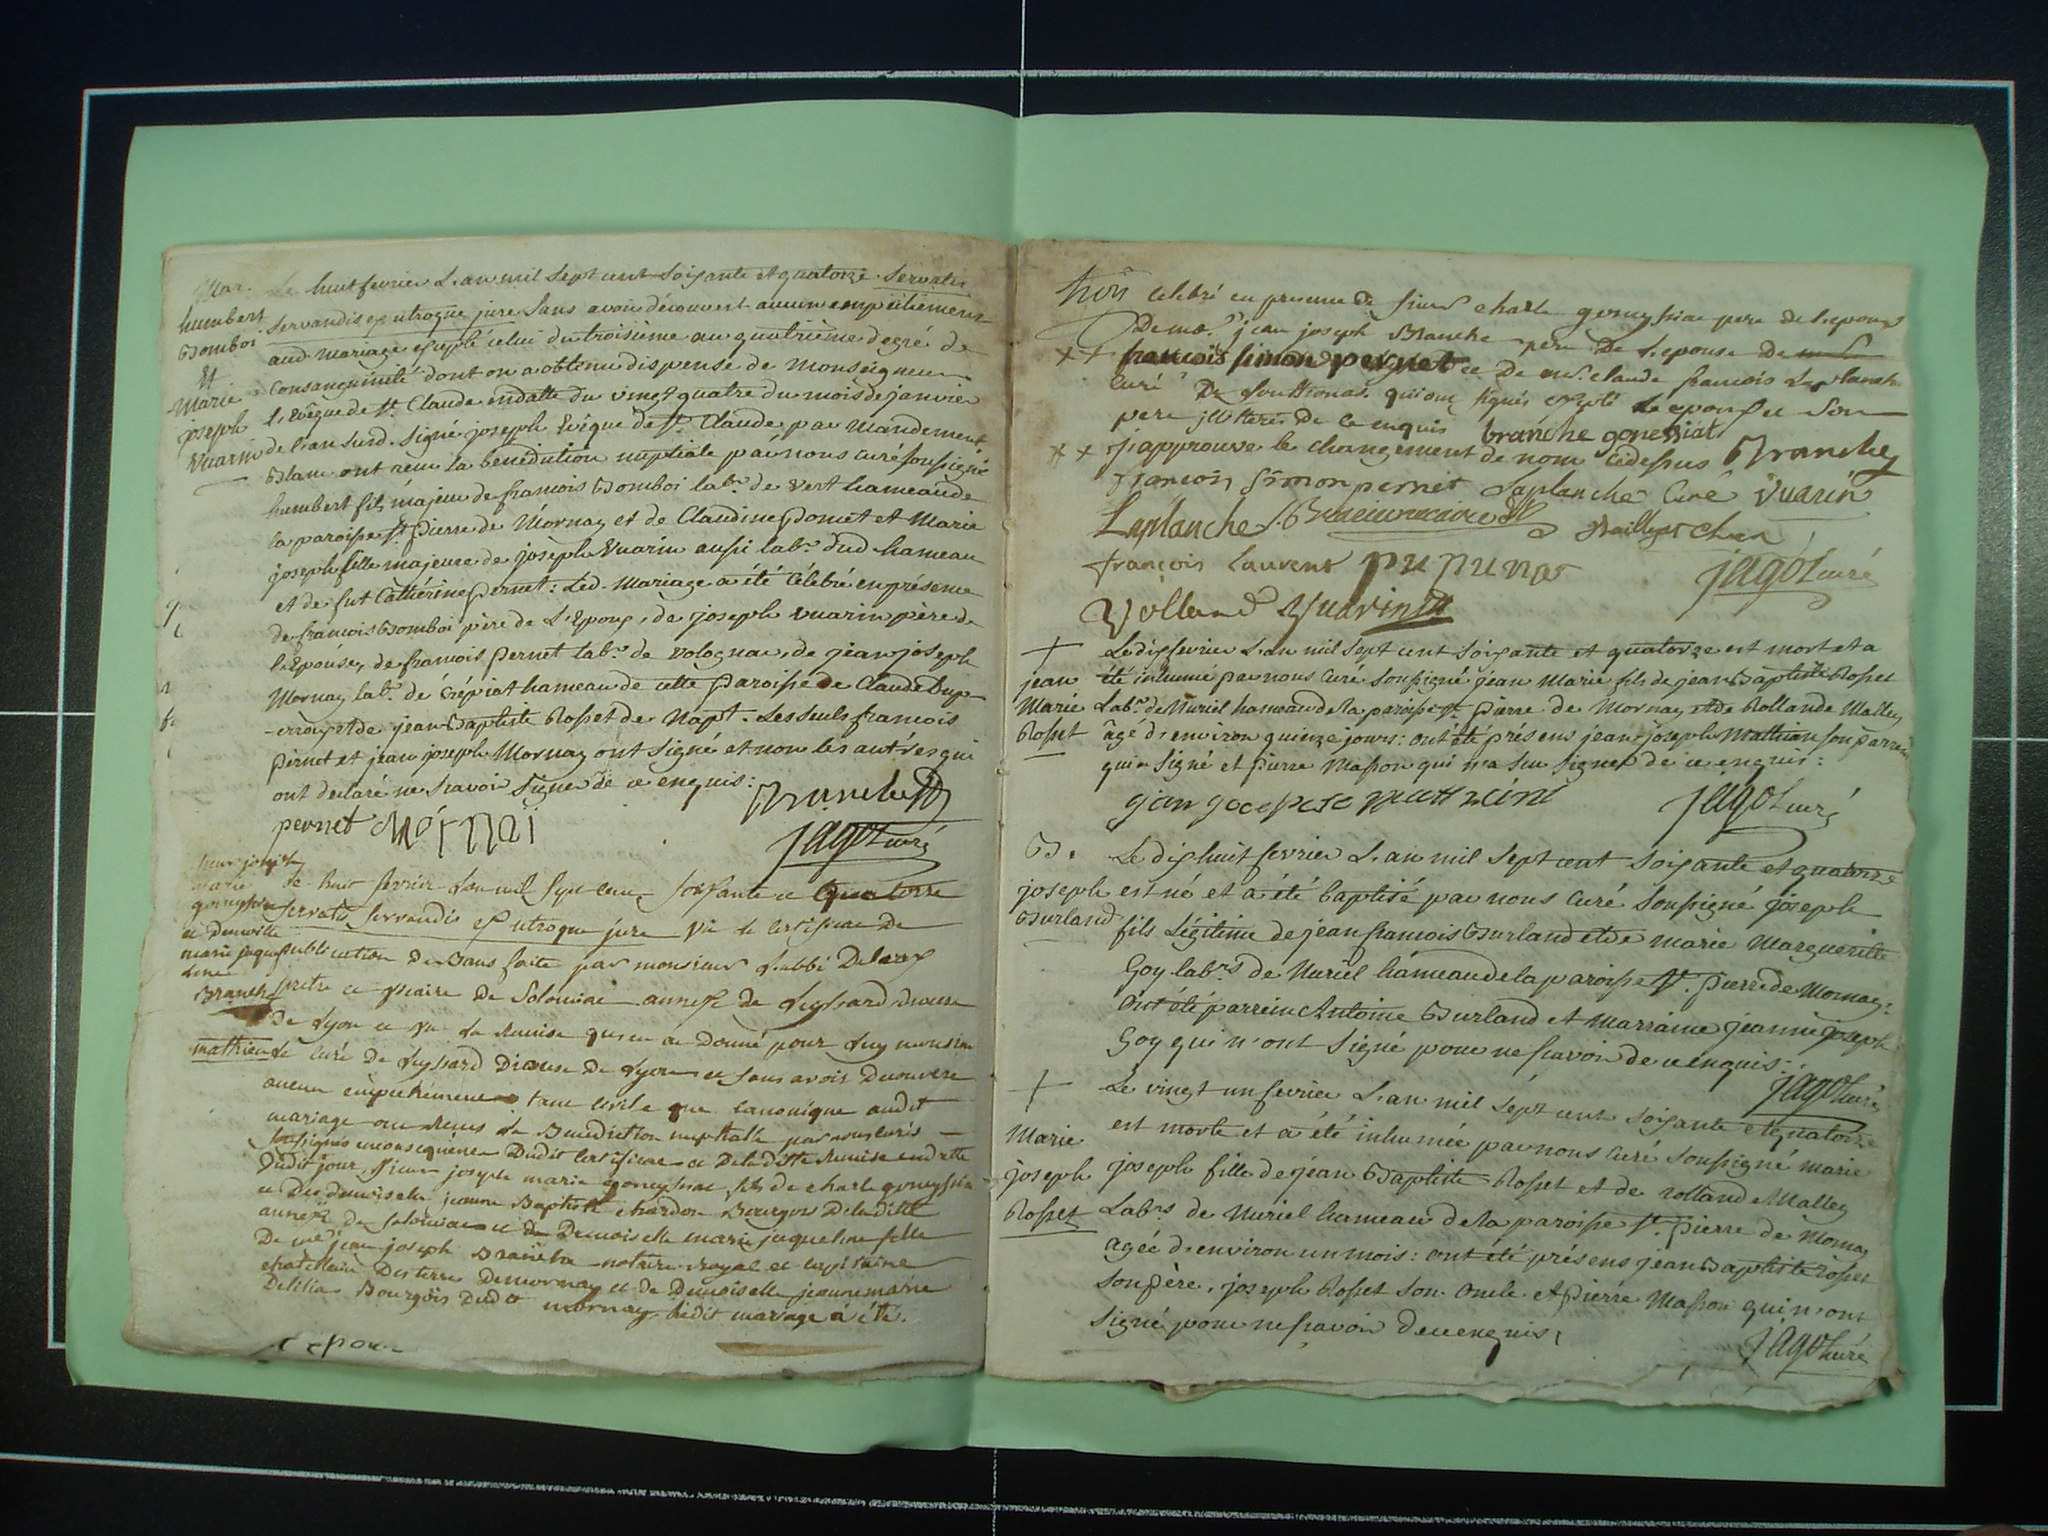 Mar.
humbert
Bomboi
Et
Marie
joseph
Vuarin
Le huit fevrier L'an mil Sept cent Soixante et quatorze Servatis
Servandis ex utroque jure Sans avoir découvert aucun empêchement
aud. Mariage excepté celui du troisième au quatrième degré de
Consanguinité dont on a obtenu dispense de Monseigneur
l'Evêque de St. Claude en datte du vingt quatre du mois de janvier
de l'an susd. Signé joseph Evêque de St. Claude par Mandement
Blanc ont reçu la bénédiction nuptiale par nous curé soussigné
humbert fils majeur de francois Bomboi labr. de Vert hameau de
la paroisse St. pierre de Mornay et de Claudine et Marie
joseph fille majeure de joseph Vuarin aussi labr. dud. hameau
et de fut Cathérine pernet: Led. Mariage a été célébré en présence
de francois Bomboi père de L'Epoux, de joseph Vuarin père de
l'Epouse, de francois pernet labr. de Volognac, de jean joseph
Mornay labr. de Crépiat hameau de cette paroisse de Claude Dup-
et de jean Baptiste Rosset de Napt. Les seuls francois
pernet et jean joseph Mornay ont signé et non les autres qui
ont declaré ne scavoir signer de ce enquis:
pernet Mornai
jagot curé
joseph
marie
et Demoiselle
marie jaque
line
Branche
mathieu
le huit fevrier L'an mil sept cent soissante et quatorze
servatis servandis ex utroque jure vu le certificat de
publication de Bans faite par monsieur L'abbé
pretre et vicaire de Solomiac annexe de Leyssard diocese
de Lyon et vu la Remise qu'en a Donné pour Luy monsieur
le curé de Leyssard Diocese de Lyon et sans avoir Decouvert
aucun empechement tant civile que canonique audit
mariage ont Reçus la Benediction nuptialle par nous curés
soussignés en consequence Dudit certificat et De laditte Remise en datte
Dudit jour, sieur joseph marie gonnyssiat fils de charle gonnyssiat
et De demoiselle jeanne Baptiste chardon Bourgois De laditte
annexe de solomiac et De Demoiselle marie jaqueline fille
De me jean joseph Branche notaire Royal et capitaine
chatellain Des terres De mornay et de Demoiselle jeanne marie
Delilia Bourgois Dudit mornay ledit mariage à été.
celebré en presence de sieur charle gonnyssiat pere de l'epoux
De me. jean joseph Branche pere De l'epouse De
++ francois simon pernet et De mr. claude francois Laplanche
curé De Souttonas qui ont signés excepté le epoux et son
pere illitérés De ce enquis branche gonessiat
++ j'approuve le changement de nom cidessus Branche
francois simon pernet Laplanche Curé Vuarin
Laplanche
françois Laurent pupunat
jagot curé
Volland Vuarin
+
jean
Marie
Rosset
Le dix fevrier L'an mil Sept cent Soixante et quatorze est mort et a
été inhumé par nous Curé Soussigné jean Marie fils de jean Baptiste Rosset
Labr. de Nuriel hameau de la paroisse St. pierre de Mornay et de Rollande Malley
âgé d'environ quinze jours: ont été présens jean joseph Mathieu son parrein
qui a signé et pierre Masson qui n'a seu signer de ce enquis:
jagot curé
B.
joseph
Burland
Le dix huit fevrier L'an mil Sept cent Soixante et quatorze
est né et a été baptisé par nous Curé Soussigné joseph
fils Légitime de jean francois Burland et de marie Marguerite
Goy labrs. de Nuriel hameau de la paroisse St. pierre de Mornay:
ont été parrein Antoine Burland et Marraine jeanne joseph
Goy qui n'ont signé pour ne scavoir de ce enquis:
jagot curé
+
Marie
joseph
Rosset
Le vingt un fevrier L'an mil Sept cent Soixante et quatorze
est morte et a été inhumée par nous Curé soussigné marie
joseph fille de jean Baptiste Rosset et de Rollande Malley
Labrs. de Nuriel hameau de la paroisse St. pierre de Mornay
agée d'environ un mois: ont été présens jean Baptiste Rosset
son père, joseph Rosset son oncle et pierre Masson qui n'ont
signé pour ne scavoir de ce enquis,
jagot curé